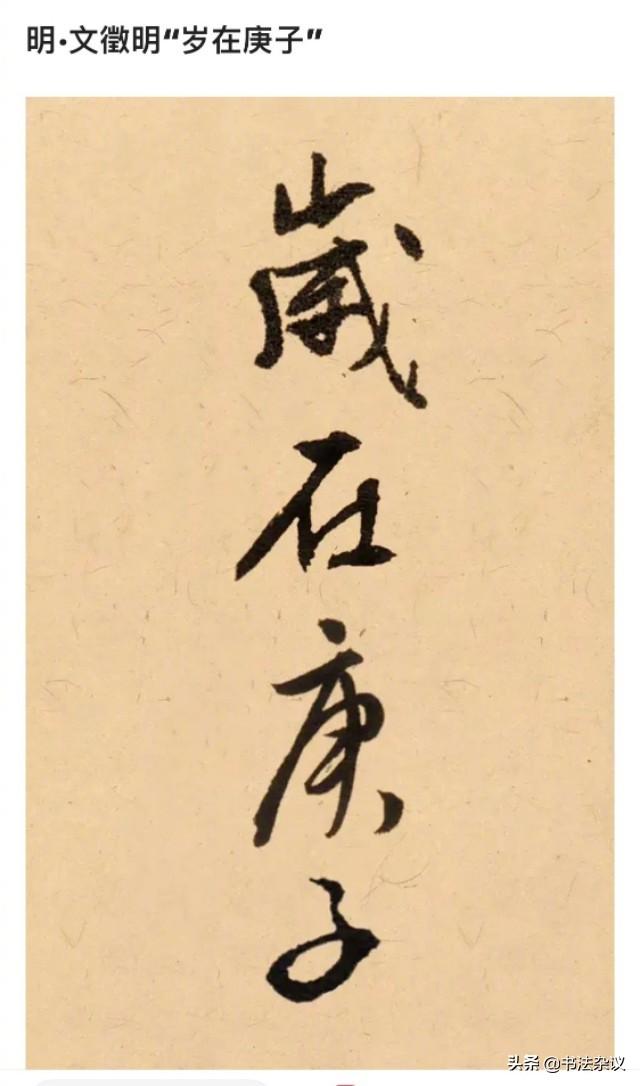 明·文徵明“岁在庚子”
歲在庚子
头条 @书法杂议